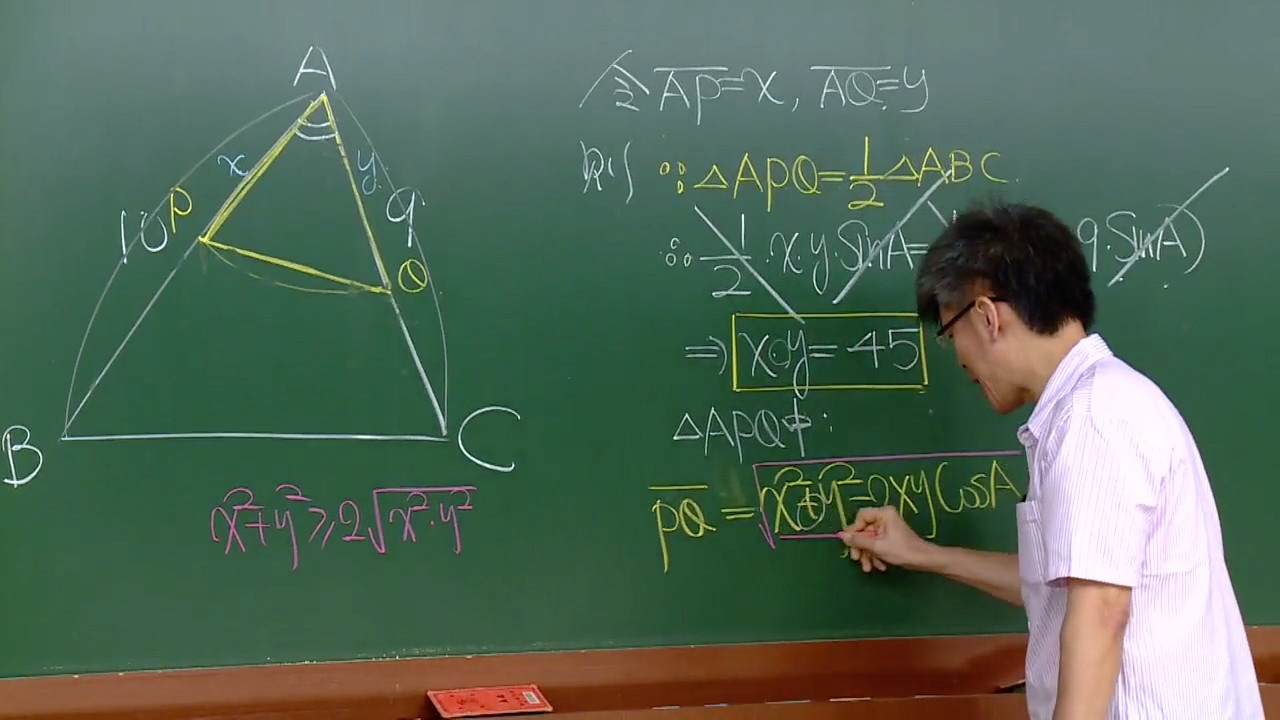 A
x
y
10
P
9
Q
B
C
x²+y²≥2√x²·y²
令 AP=x, AQ=y
則 ∵ △APQ=1/2△ABC
∴ 1/2·x·y·SinA= 9·SinA)
⇒ x·y=45
△APQ中:
PQ=√x²+y²-2xyCosA